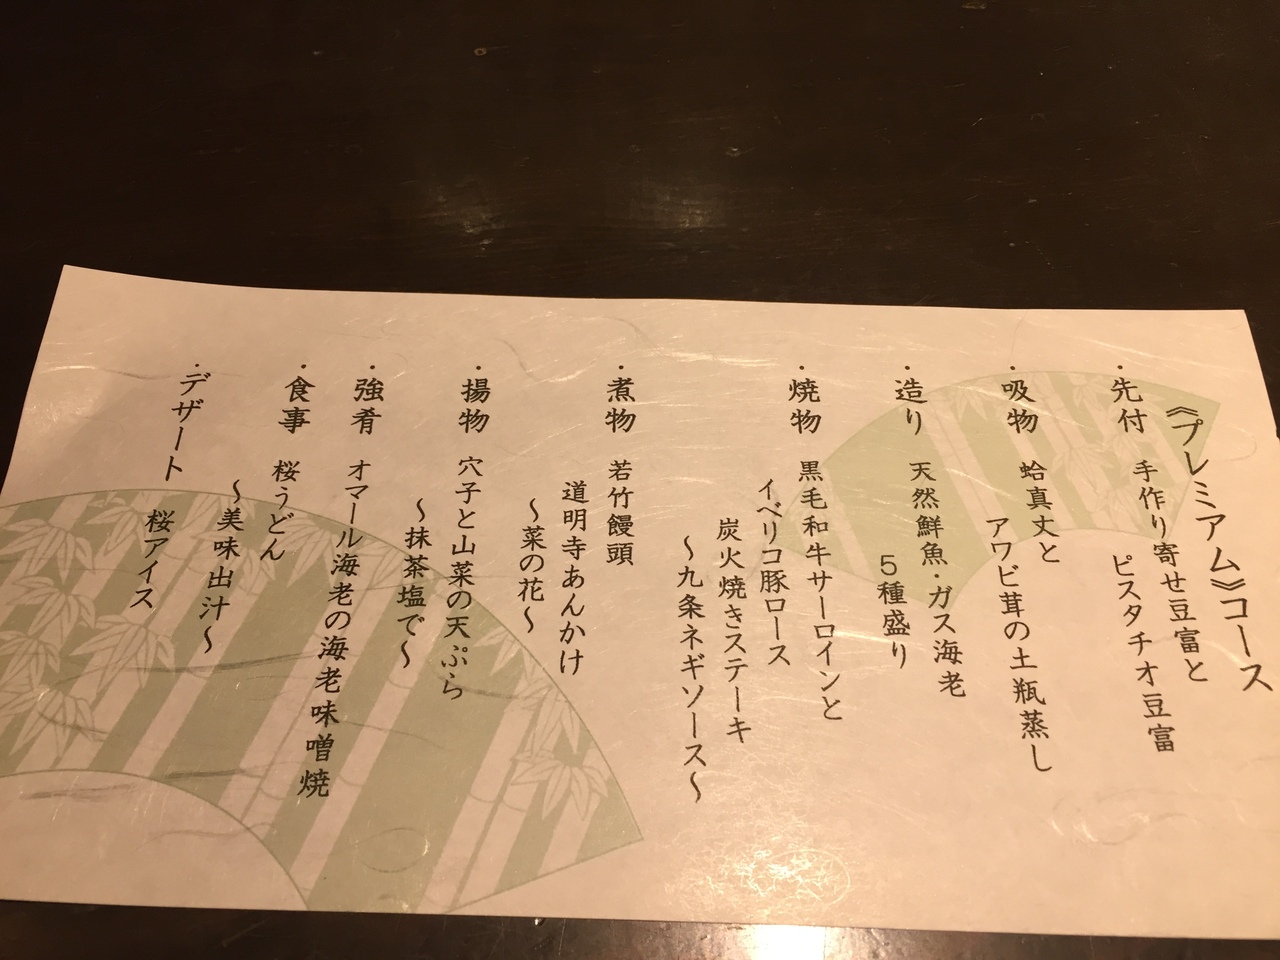 《プレミアム》コース
・先付　手作り寄せ豆富と
ピスタチオ豆富
・吸物　蛤真丈と
アワビ茸の土瓶蒸し
・造り　天然鮮魚・ガス海老
５種盛り
・焼物　黒毛和牛サーロインと
イベリコ豚ロース
炭火焼きステーキ
～九条ネギソース～
・煮物　若竹饅頭
道明寺あんかけ
～菜の花～
・揚物　穴子と山菜の天ぷら
～抹茶塩で～
・強肴　オマール海老の海老味噌焼
・食事　桜うどん
～美味出汁～
・デザート
桜アイス